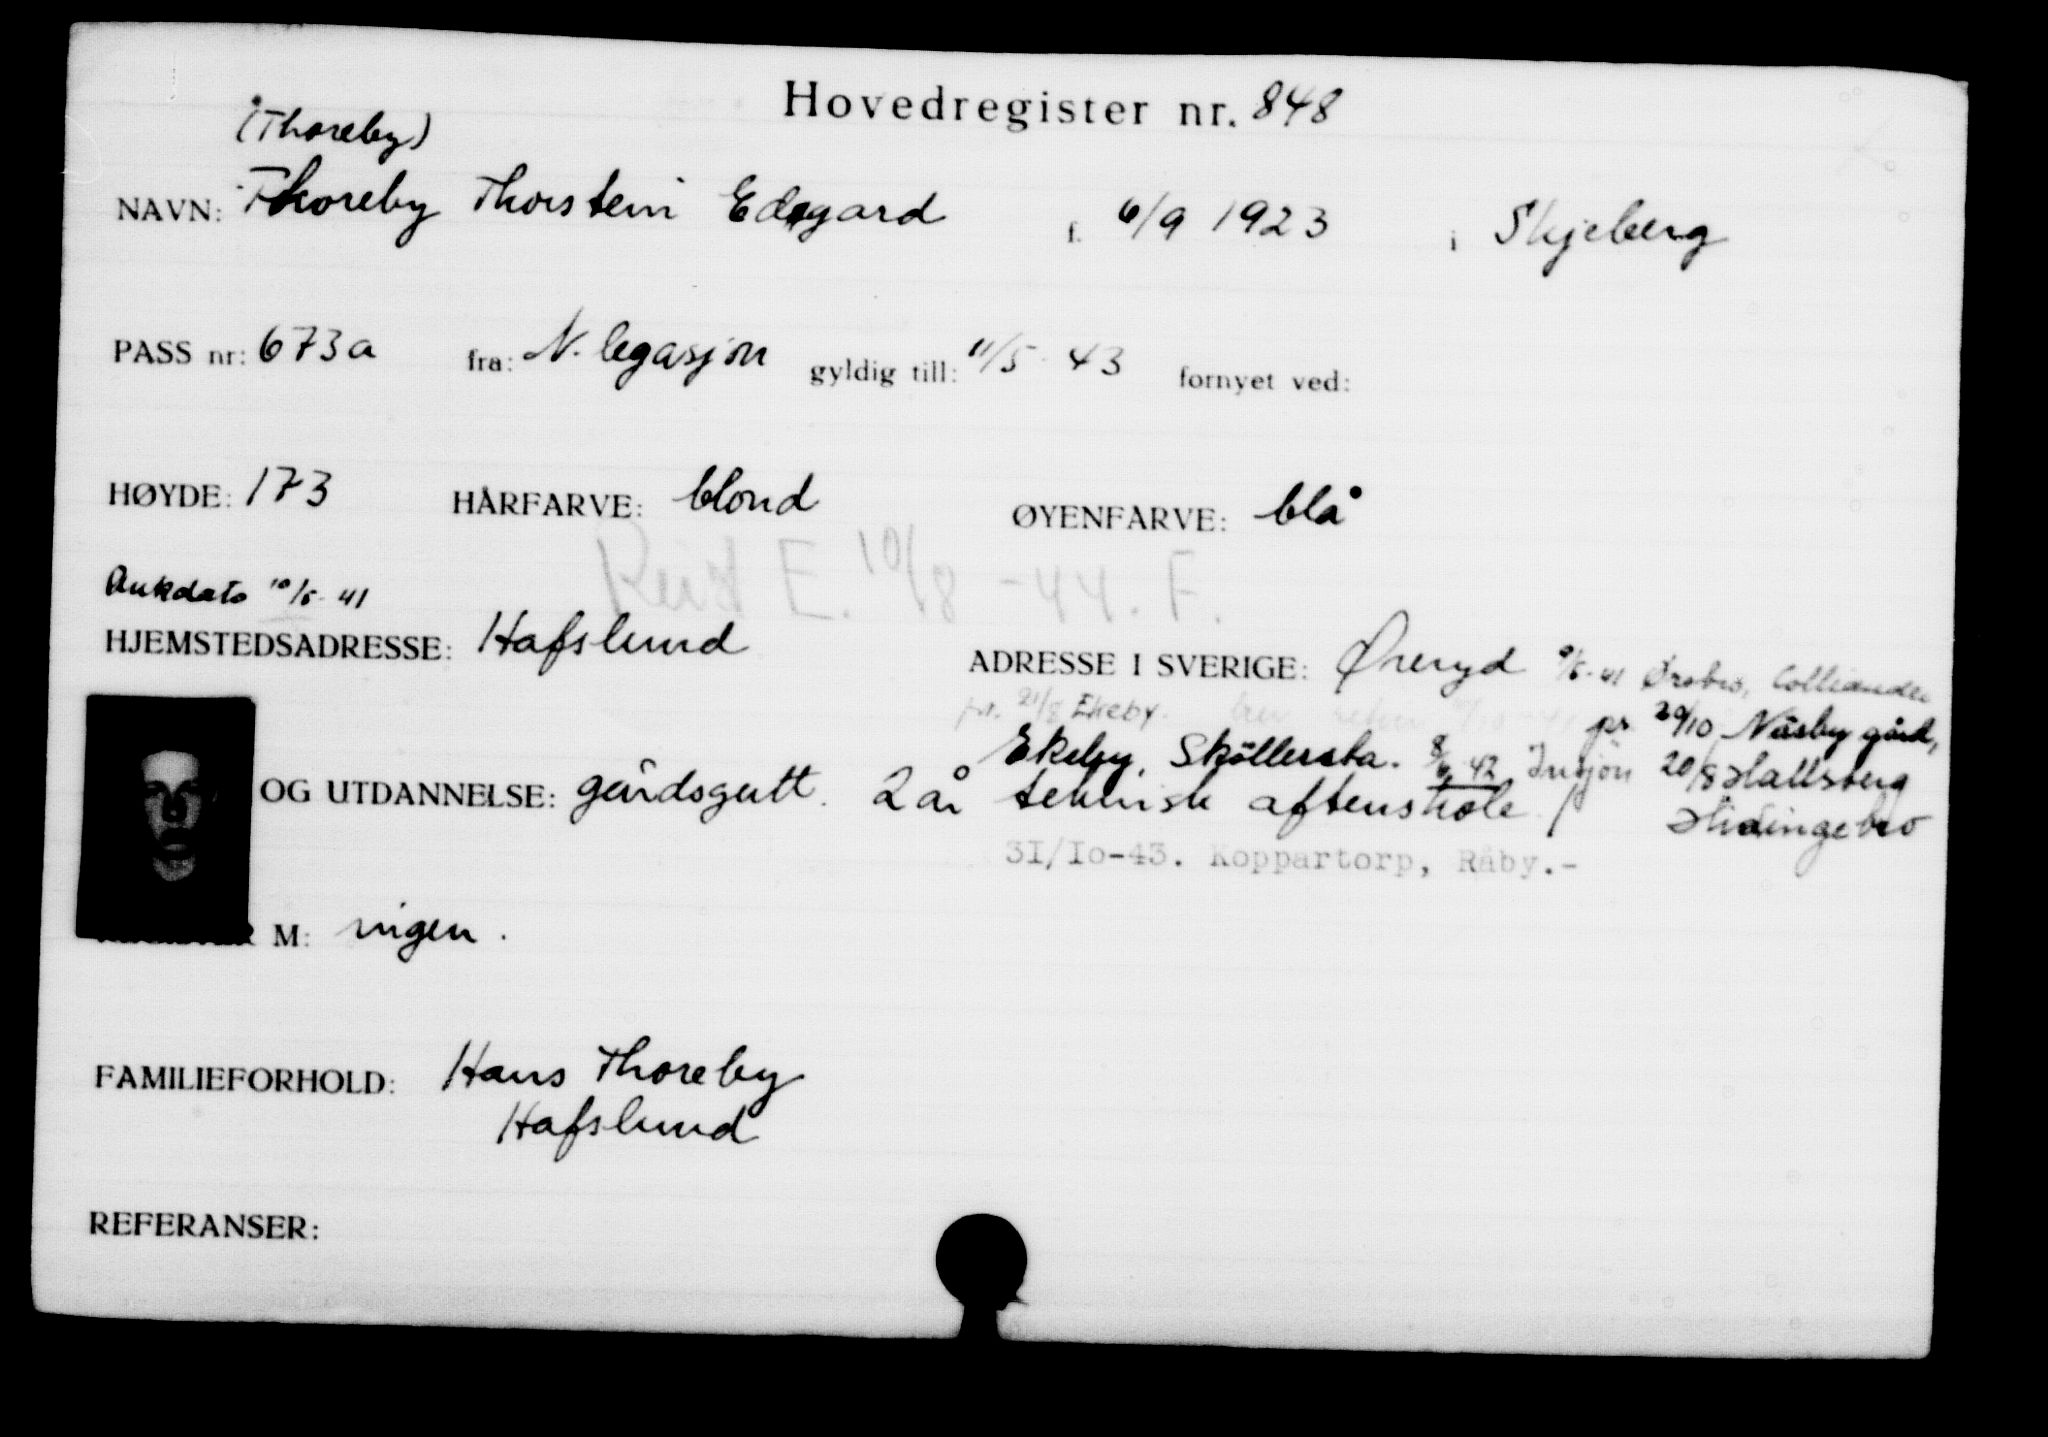 Hovedregister nr. 848
(Thoreby)
NAVN: Thoreby Thorstein Edgard f. 6/9 1923 i Skjeberg
PASS nr: 673a fra: N. legasjon gyldig till: 11/5 - 43 fornyet ved:
HØYDE: 173 HÅRFARVE: blond ØYENFARVE: blå
Reist E. 10/8 - 44. F.
Ankdato 10/5 - 41
HJEMSTEDSADRESSE: Hafslund ADRESSE I SVERIGE: Øreryd 9/5-41 Örebro, Collianders
pr. 21/8 Ekeby. pr 20/10 Näsby gård,
Ekeby, Sköllersta. 8/6 42 Insjön 20/8 Hallsberg
OG UTDANNELSE: gårdsgutt. 2 år teknisk aftenskole Hidingebro
31/10-43. Koppartorp, Råby.-
M: ingen.
FAMILIEFORHOLD: Hans Thoreby
Hafslund
REFERANSER: